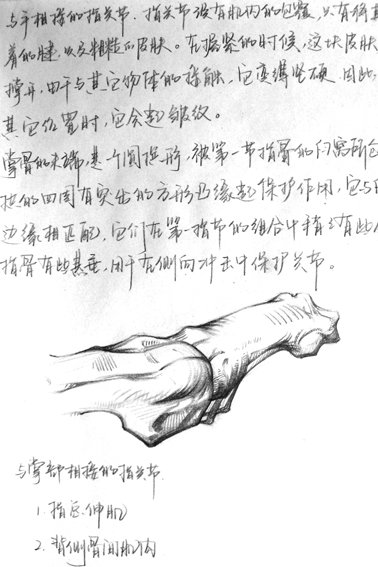 与手相接的指关节. 指关节没有肌肉的包裹, 只有稀疏
着的腱, 以及粗糙的皮肤。在握紧的时候, 这块皮肤
撑开, 由于与其它物体的接触, 它变得坚硬. 因此,
其它位置时, 它会起皱纹。
掌骨的末端是个圆拱形, 被第一节指骨的凹窝所包
拱的四周有突出的方形凸缘起保护作用, 它与
边缘相匹配, 它们在第一指节的组合中
指骨有些悬垂, 用于在侧向冲击中保护关节。
与掌部相接的指关节
1. 指总伸肌
2. 背侧骨间肌肉